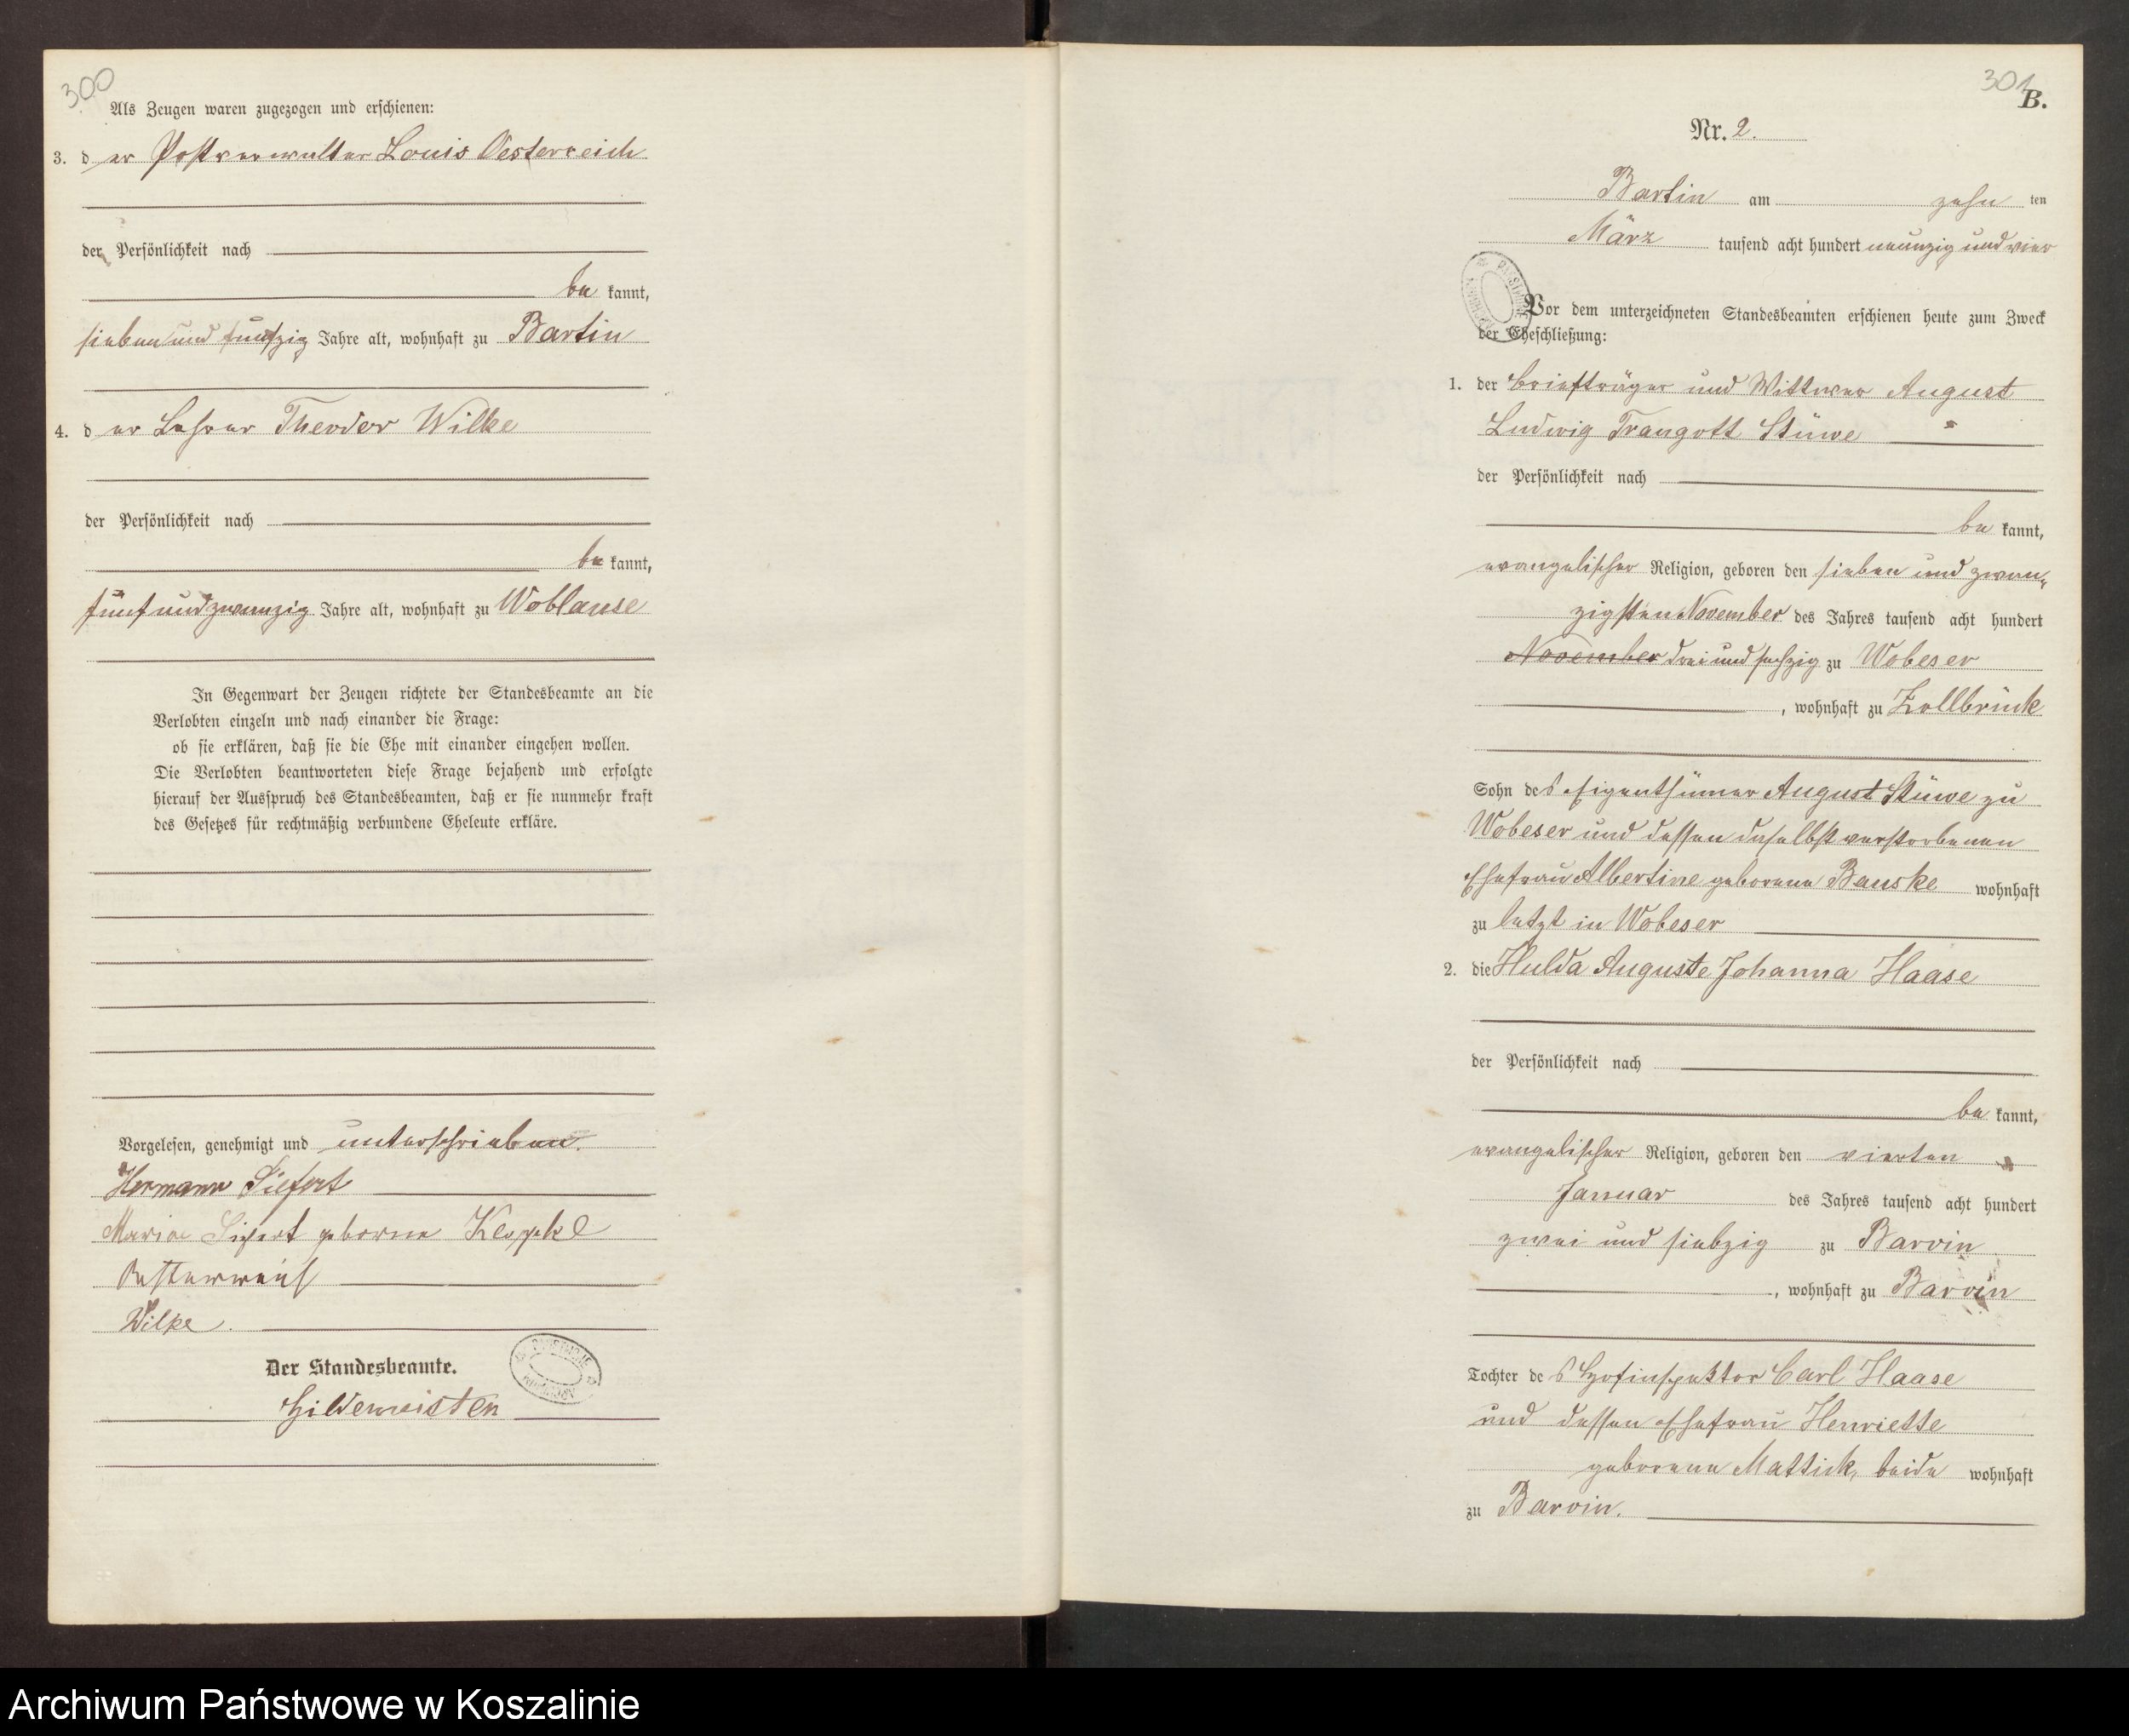 300
Als Zeugen waren zugezogen und erschienen:
3. der Postverwalter Louis Oesterreich
der Persönlichkeit nach
bekannt,
sieben und fünfzig Jahre alt, wohnhaft zu Bartin
4. der Lehrer Theodor Wilke
der Persönlichkeit nach
bekannt,
fünf und zwanzig Jahre alt, wohnhaft zu Woblanse
In Gegenwart der Zeugen richtete der Standesbeamte an die
Verlobten einzeln und nach einander die Frage:
ob sie erklären, daß sie die Ehe mit einander eingehen wollen.
Die Verlobten beantworteten diese Frage bejahend und erfolgte
hierauf der Ausspruch des Standesbeamten, daß er sie nunmehr kraft
des Gesetzes für rechtmäßig verbundene Eheleute erkläre.
Vorgelesen, genehmigt und unterschrieben.
Hermann Siefert
Maria Siefert geborne
Wilke.
Der Standesbeamte.
Gildemeister
301
B.
Nr. 2.
Bartin am zehn ten
März tausend acht hundert neunzig und vier
Vor dem unterzeichneten Standesbeamten erschienen heute zum Zweck
der Eheschließung:
1. der Briefträger und Wittwer August
Ludwig Traugott Stüwe
der Persönlichkeit nach
bekannt,
evangelischer Religion, geboren den sieben und zwan„
zigsten November des Jahres tausend acht hundert
November drei und sechzig zu Wobeser
, wohnhaft zu Zollbrück
Sohn des Eigenthümer August Stüwe zu
Wobeser und dessen daselbst verstorbenen
Ehefrau Albertine geborene Bauske wohnhaft
zu letzt in Wobeser
2. die Hulda Auguste Johanna Haase
der Persönlichkeit nach
bekannt,
evangelischer Religion, geboren den vierten
Januar des Jahres tausend acht hundert
zwei und siebzig zu Barvin
, wohnhaft zu Barvin
Tochter des Hofinspektor Carl Haase
und dessen Ehefrau Henriette
geborene Mattick, beide wohnhaft
zu Barvin.
Archiwum Państwowe w Koszalinie